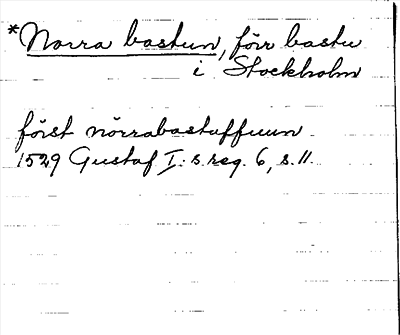 *Norra bastun, förr bastu
i Stockholm
först nörrabastuffuun
1529 Gustaf I:s reg. 6, s. 11.